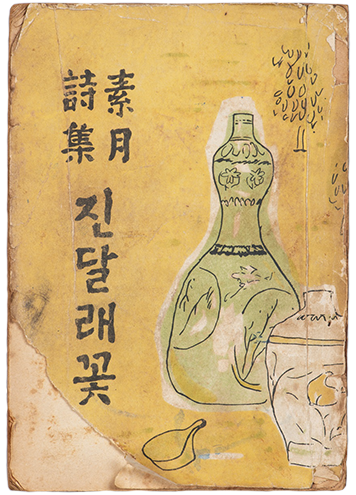 素月
詩集
진달래꽃